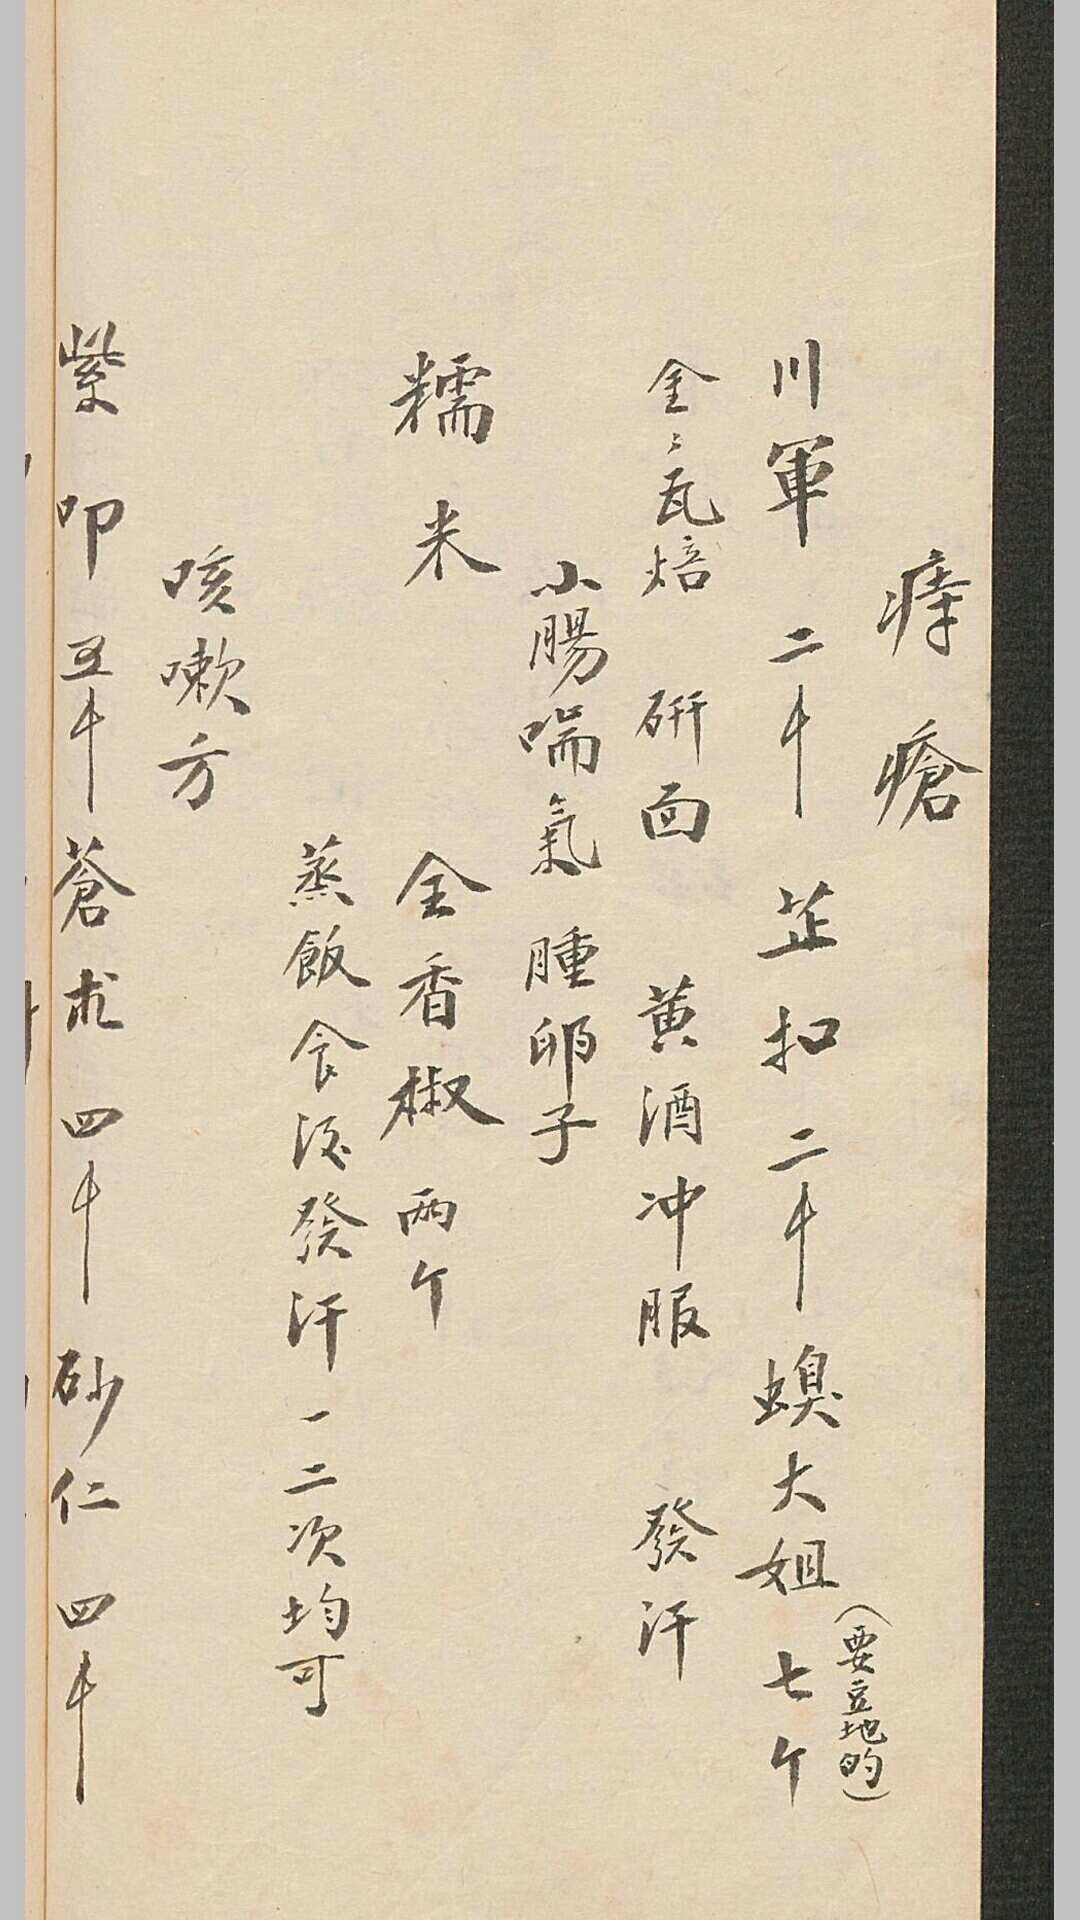 痔瘡
川軍二千芷扣二千螝大姐七个
(要立地的)
全〻瓦焙 研面 黄酒冲服 發汗
小腸喘氣 腫卵子
糯米 全香椒 两个
蒸飯食後發汗一二次均可
咳嗽方
紫叩五千蒼朮四千砂仁四千